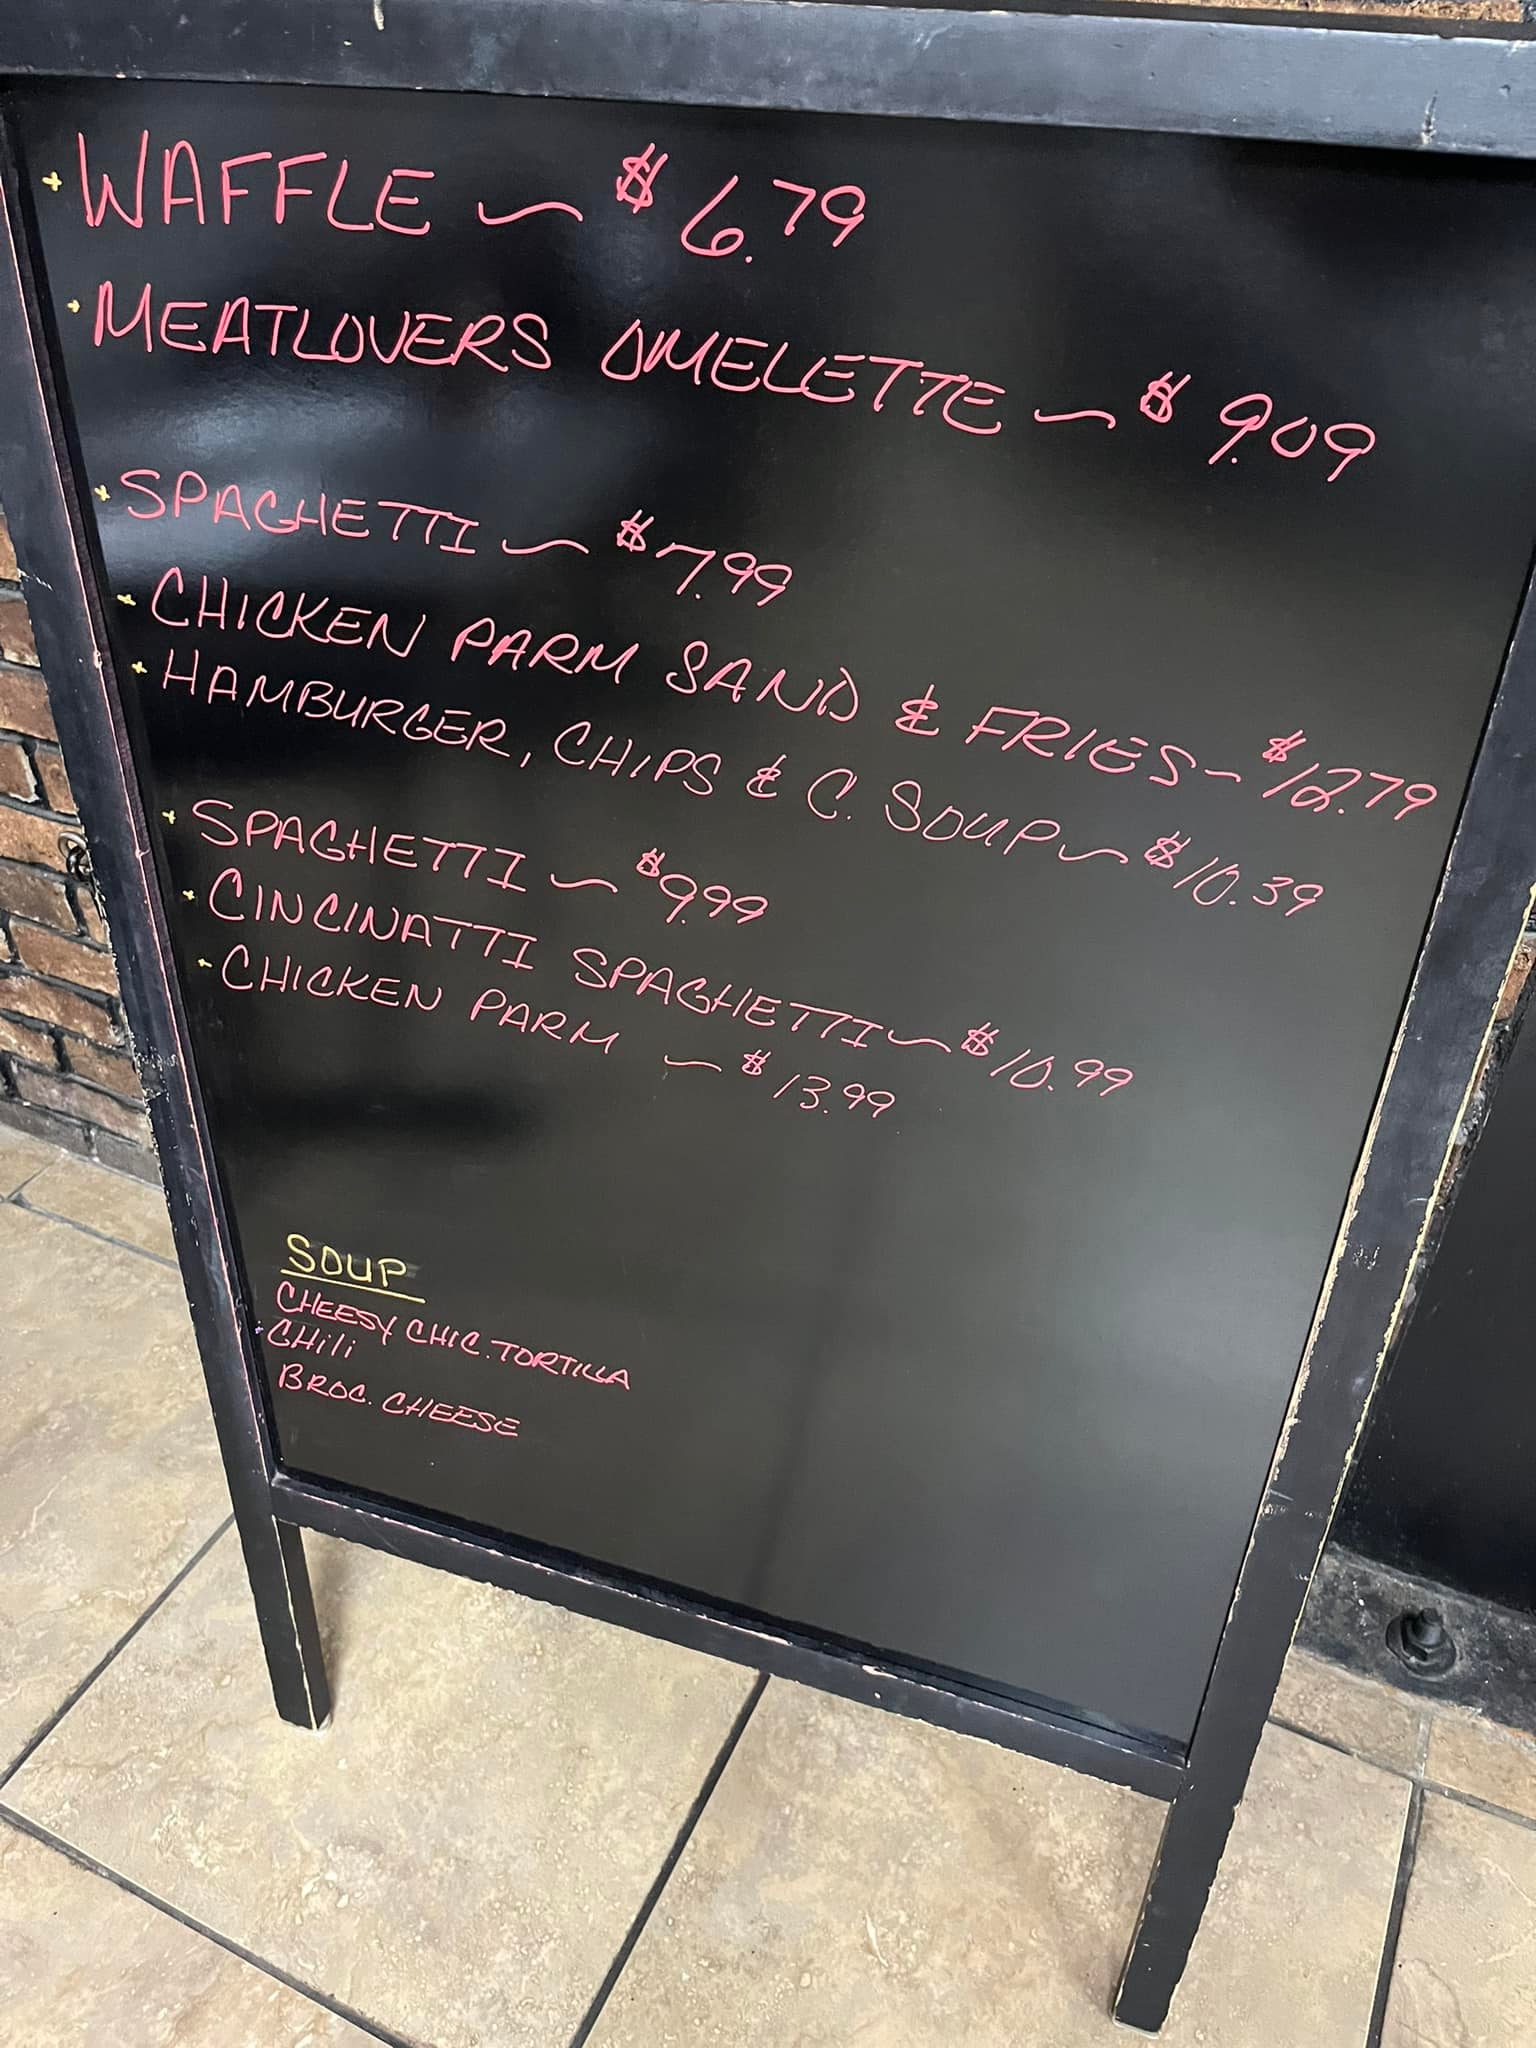 WAFFLE ~ $6.79
MEATLOVERS OMELETTE ~ $9.09
SPAGHETTI ~ $7.99
CHICKEN PARM SAND & FRIES ~ $12.79
HAMBURGER, CHIPS & C. SOUP ~ $10.39
SPAGHETTI ~ $9.99
CINCINATTI SPAGHETTI ~ $10.99
CHICKEN PARM ~ $13.99
SOUP
CHEESY CHIC. TORTILLA
CHili
BROC. CHEESE